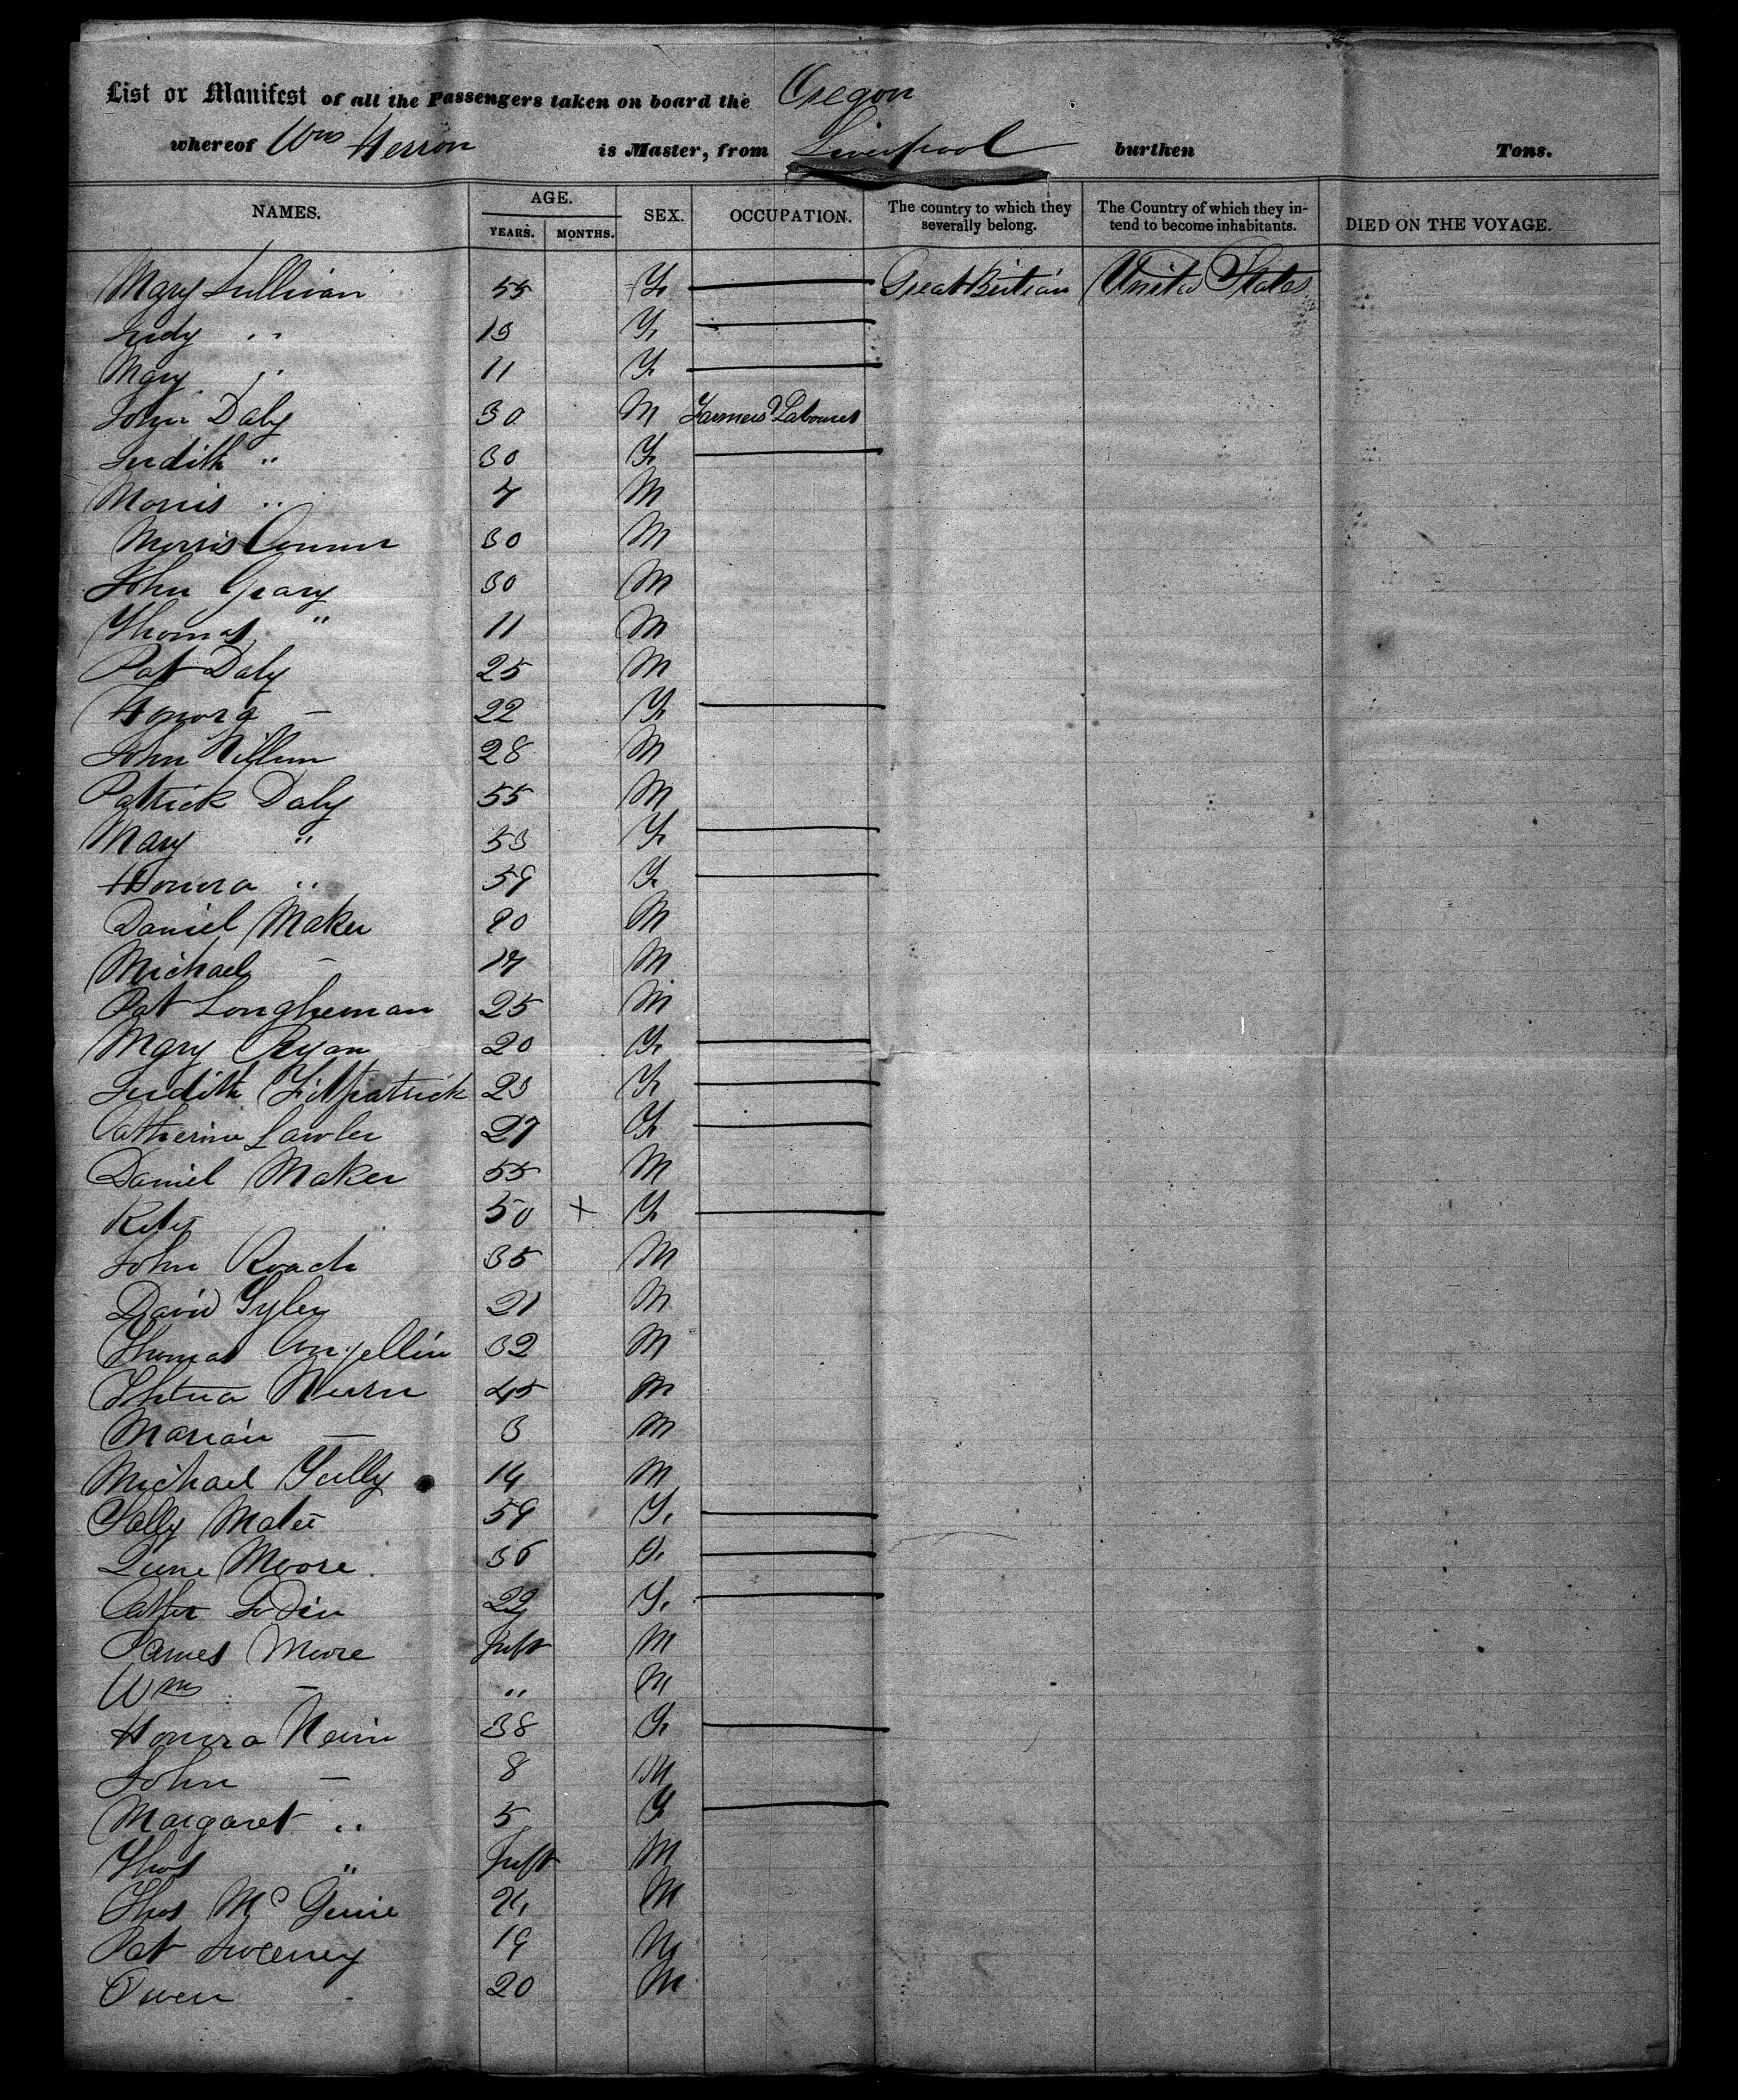 List or Manifest of all the Passengers taken on board the Oregon
whereof Wm Herron is Master, from Liverpool burthen Tons.
NAMES. AGE. YEARS. MONTHS. SEX. OCCUPATION. The country to which they severally belong. The Country of which they intend to become inhabitants. DIED ON THE VOYAGE.
Mary Sullivan 55 F Great Britian United States
Judy " 13 F
Mary " 11 F
John Daly 30 M Farmers & Labourers
Judith " 30 F
Morris " 4 M
Morris Connor 30 M
John Geary 30 M
Thomas " 11 M
Pat Daly 25 M
Honora — 22 F
John 28 M
Patrick Daly 55 M
Mary " 53 F
Honora " 59 F
Daniel Maker 20 M
Michael — 14 M
Pat Longheman 25 M
Mary Ryan 20 F
Judith Fitpatrick 23 F
Catherine Lawler 27 F
Daniel Maker 55 M
50 + F
John Roach 35 M
David 21 M
Thomas 32 M
45 M
— 3 M
Michael Tully 14 M
Sally 59 F.
Moore 36 F.
22 F.
James Moore Inft M
Wm — " M
Honora 38 F
John — 8 M
Margaret " 5 F
Thos " Inft M
Thos Mc M
Pat Sweeney 19 M
Owen 20 M